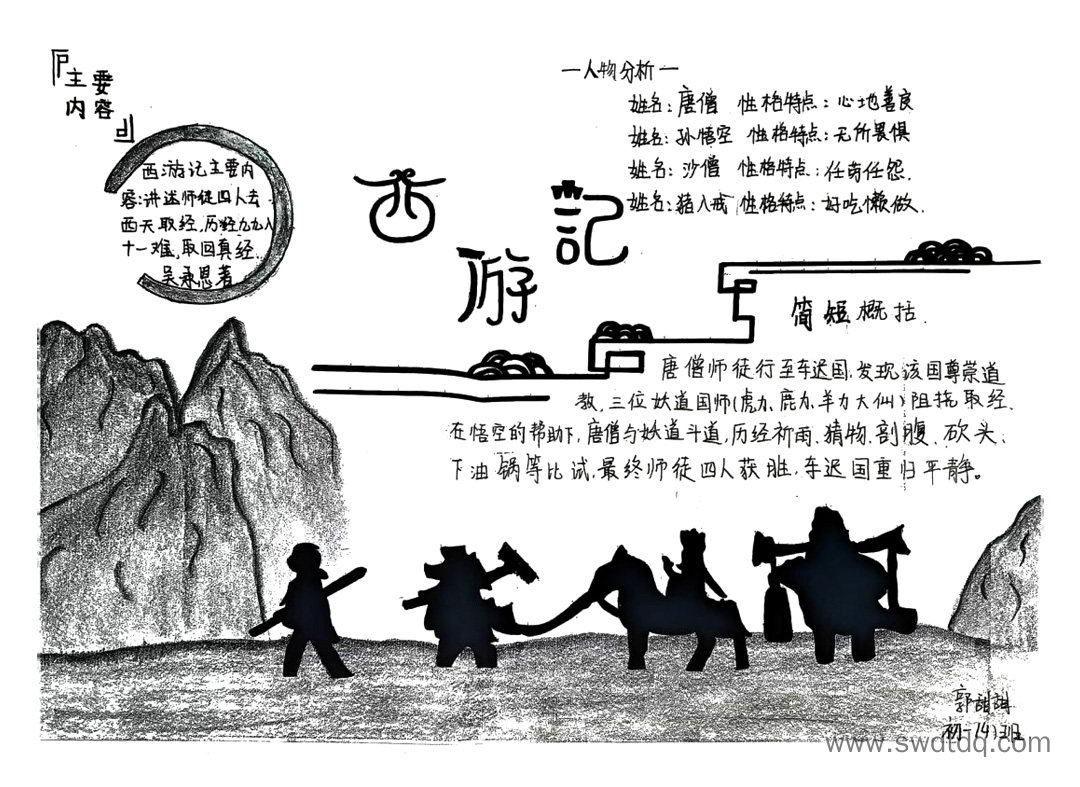 『主要
内容』
西游记主要内
容:讲述师徒四人去
西天取经,历经九九八
十一难,取回真经.
吴承恩著
西游記
—人物分析—
姓名:唐僧 性格特点:心地善良
姓名:孙悟空 性格特点:无所畏惧
姓名:沙僧 性格特点:任劳任怨.
姓名:猪八戒 性格特点:好吃懒做.
简短概括.
唐僧师徒行至车迟国.发现该国尊崇道
教,三位妖道国师(虎力、鹿力、羊力大仙)阻挠取经.
在悟空的帮助下,唐僧与妖道斗道,历经祈雨、猜物、剖腹、砍头、
下油锅等比试,最终师徒四人获胜,车迟国重归平静。
郭甜甜
初一(4)班
www.swdtdq.com